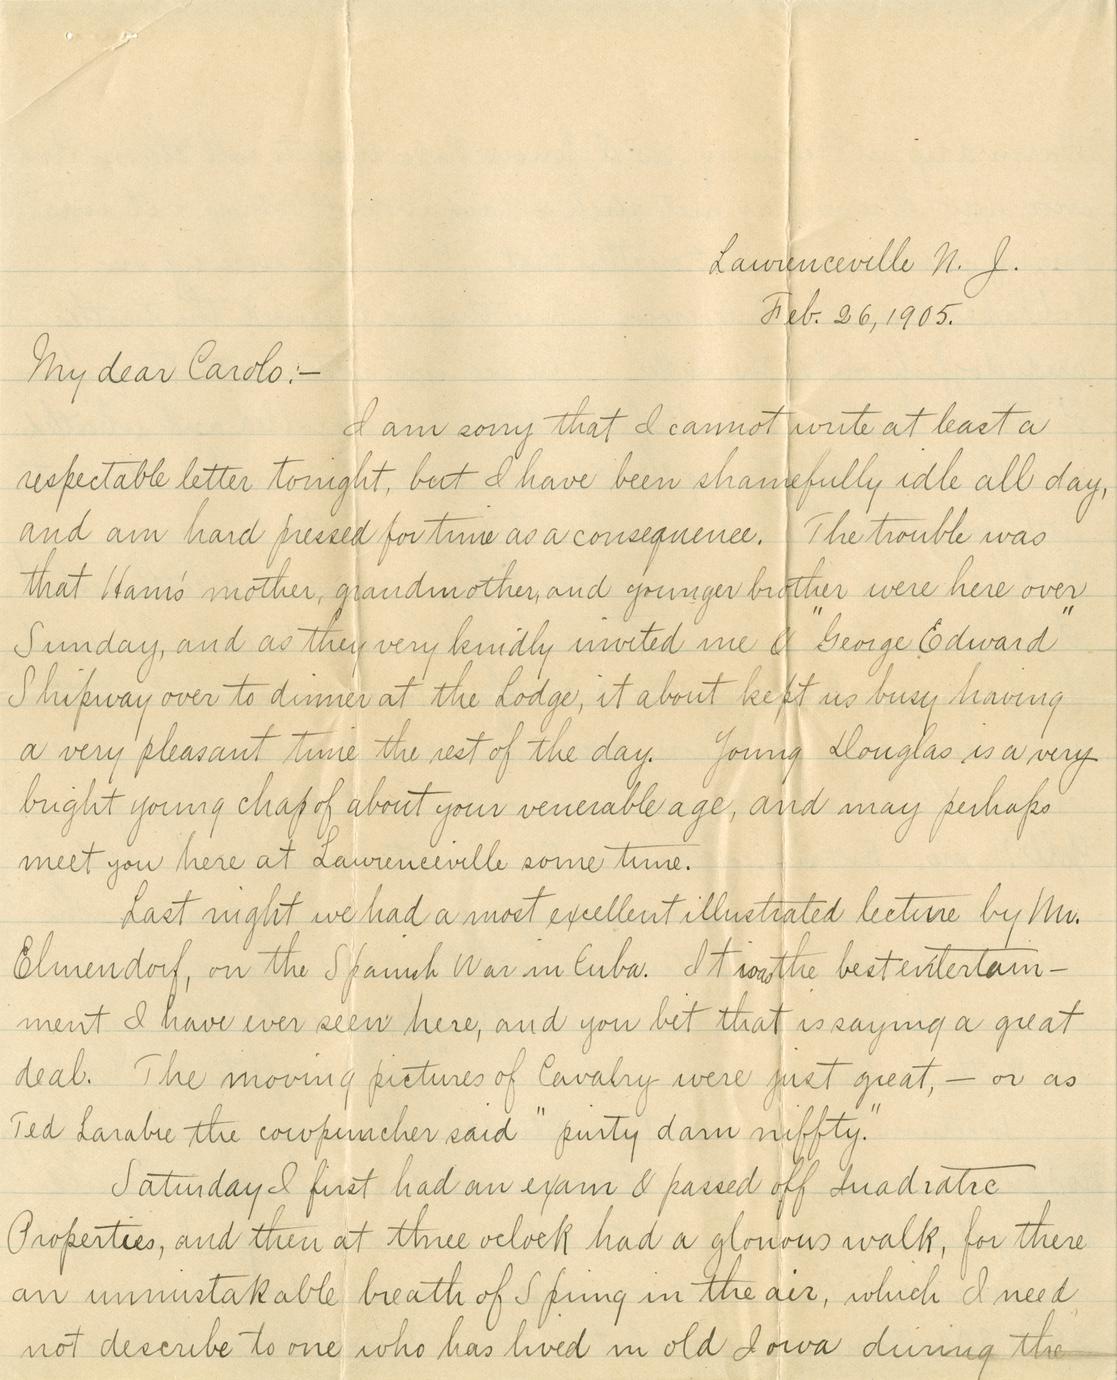 Lawrenceville N. J.
Feb. 26, 1905.
My dear Carolo:—
I am sorry that I cannot write at least a
respectable letter tonight, but I have been shamefully idle all day,
and am hard pressed for time as a consequence. The trouble was
that Ham's mother, grandmother, and younger brother were here over
Sunday, and as they very kindly invited me & "George Edward"
Shipway over to dinner at the Lodge, it about kept us busy having
a very pleasant time the rest of the day. Young Douglas is a very
bright young chap of about your venerable age, and may perhaps
meet you here at Lawrenceville some time.
Last night we had a most excellent illustrated lecture by Mr.
Elmendorf, on the Spanish War in Cuba. It was the best entertain-
ment I have ever seen here, and you bet that is saying a great
deal. The moving pictures of Cavalry were just great, — or as
Ted Larabie the cowpuncher said "purty darn niffty."
Saturday I first had an exam & passed off Quadratic
Properties, and then at three oclock had a glorious walk, for there
an unmistakable breath of Spring in the air, which I need
not describe to one who has lived in old Iowa during the